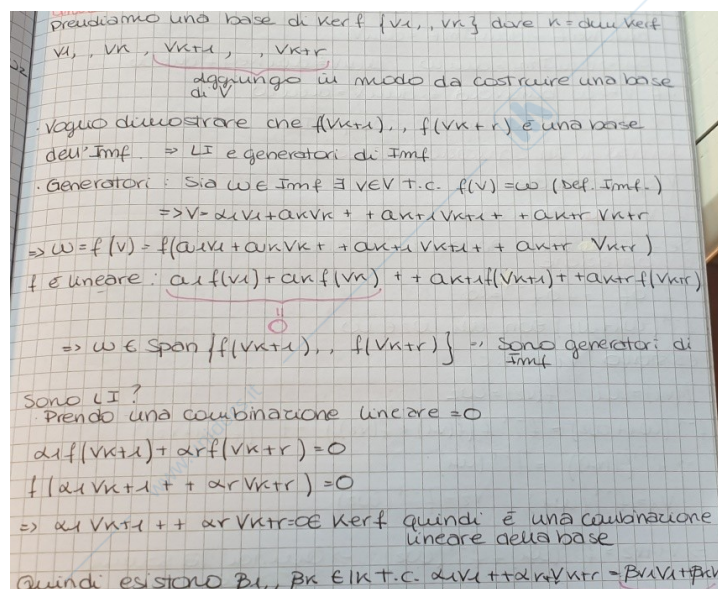 Prendiamo una base di Kerf {v1, , vk} dove k = dim Kerf
v1, , vk, vk+1, , vk+r
aggiungo in modo da costruire una base
di V
. voglio dimostrare che f(vk+1).., f(vk+r) è una base
dell'Imf. => LI e generatori di Imf
. Generatori: Sia w ∈ Imf ∃ v∈V t.c. f(v)=w (Def. Imf.)
=> v= α1v1 + αkvk + + αk+1vk+1 + + αk+r vk+r
=> w = f(v) = f(α1v1 + αkvk + + αk+1 vk+1 + + αk+r vk+r)
f è lineare: α1f(v1) + αkf(vk) + + αk+1f(vk+1) + +αk+rf(vk+r)
0
=> w ∈ Span {f(vk+1),., f(vk+r)} -> sono generatori di
Imf
Sono LI?
. Prendo una combinazione lineare =0
α1f(vk+1) + αrf(vk+r) = 0
f(α1vk+1 + + αrvk+r) = 0
=> α1 vk+1 + + αr vk+r=0∈ Kerf quindi è una combinazione
lineare della base
Quindi esistono β1,, βk ∈ IK t.c. α1v1 ++αk+rvk+r = βv1v1+βkv